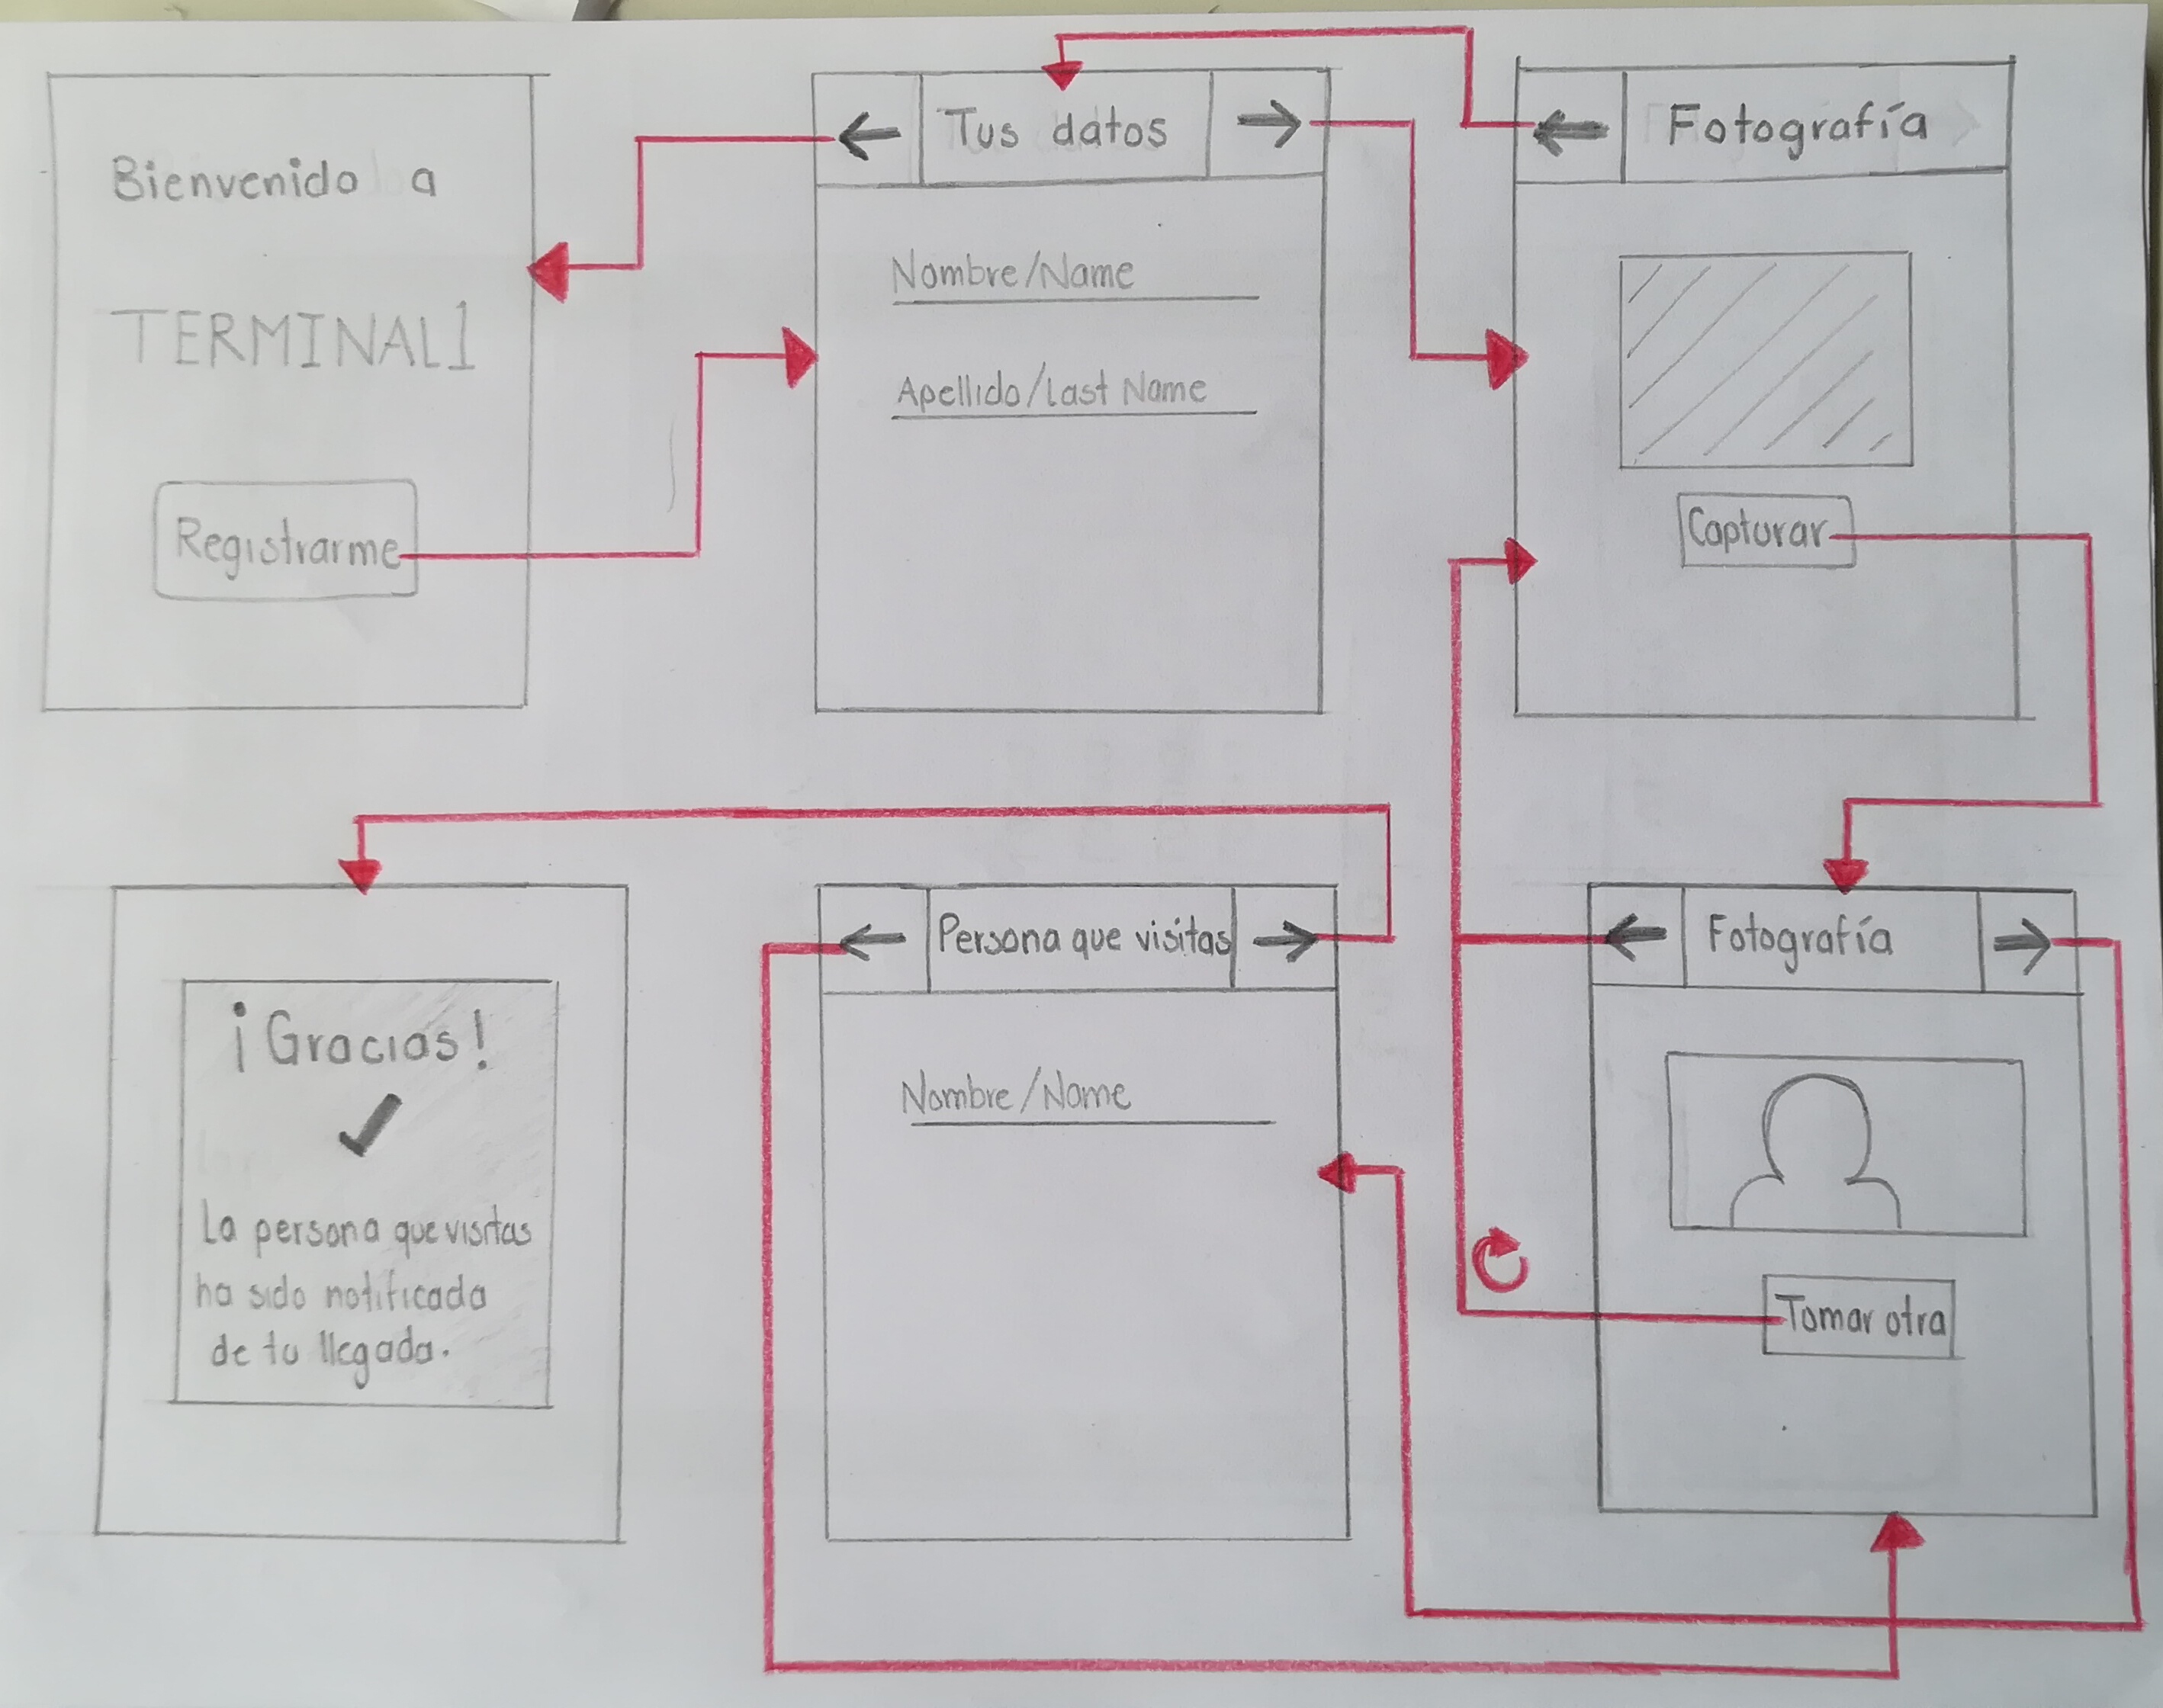 Bienvenido a
TERMINAL1
Registrarme
Tus datos
Nombre/Name
Apellido/Last Name
Fotografía
Capturar
¡Gracias!
La persona que visitas
ha sido notificada
de tu llegada.
Persona que visitas
Nombre/Name
Fotografía
Tomar otra